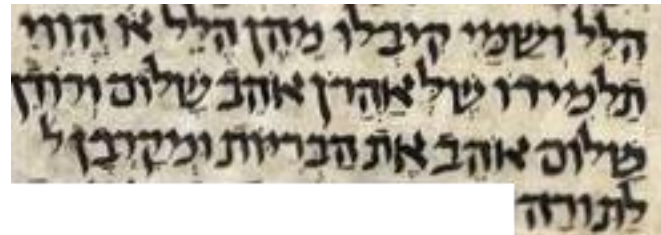 הלל ושמי קיבלו מהן הלל או הווי
תלמידו של אהרן אהב שלום ורודף
שלום אהב את הבריות ומקרבן ל
לתורה